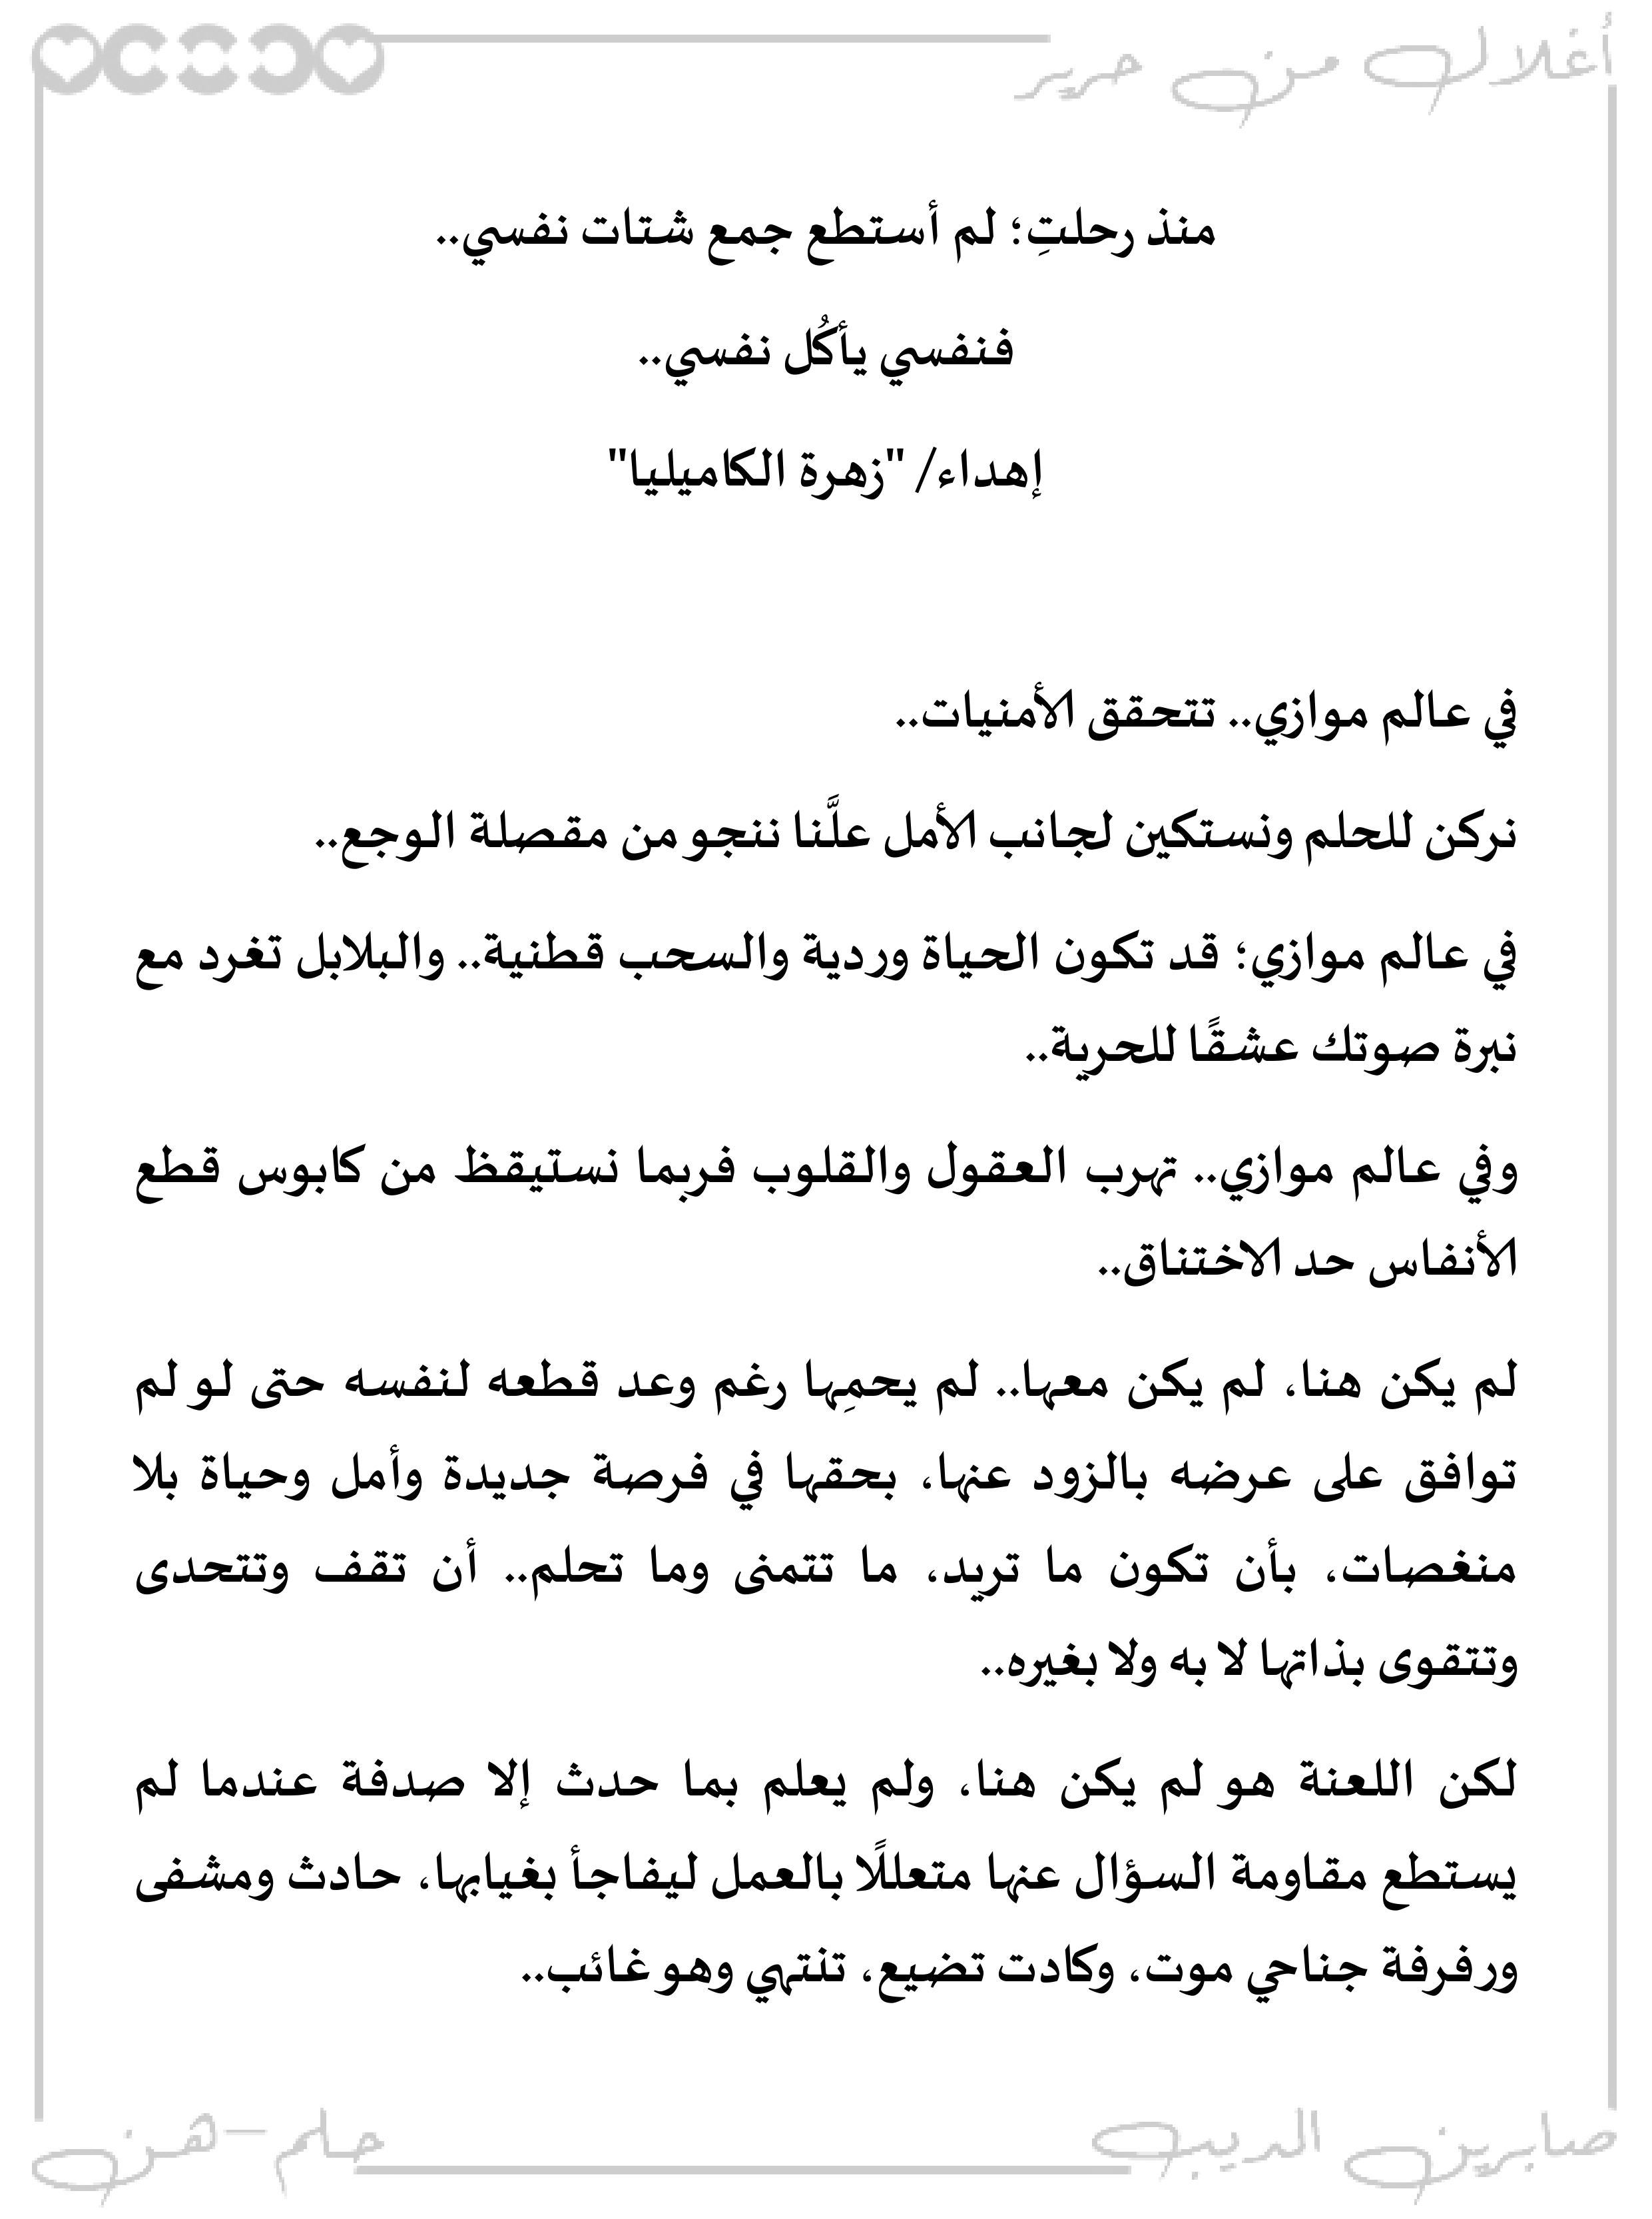 أغلال من حرير
منذ رحلتِ؛ لم أستطع جمع شتات نفسي..
فنفسي يأكُل نفسي..
إهداء/ "زهرة الكاميليا"
في عالم موازي.. تتحقق الأمنيات..
نركن للحلم ونستكين لجانب الأمل علَّنا ننجو من مقصلة الوجع..
في عالم موازي؛ قد تكون الحياة وردية والسحب قطنية.. والبلابل تغرد مع
نبرة صوتك عشقًا للحرية..
وفي عالم موازي.. تهرب العقول والقلوب فربما نستيقظ من كابوس قطع
الأنفاس حد الاختناق..
لم يكن هنا، لم يكن معها.. لم يحمِها رغم وعد قطعه لنفسه حتى لو لم
توافق على عرضه بالزود عنها، بحقها في فرصة جديدة وأمل وحياة بلا
منغصات، بأن تكون ما تريد، ما تتمنى وما تحلم.. أن تقف وتتحدى
وتتقوى بذاتها لا به ولا بغيره..
لكن اللعنة هو لم يكن هنا، ولم يعلم بما حدث إلا صدفة عندما لم
يستطع مقاومة السؤال عنها متعللًا بالعمل ليفاجأ بغيابها، حادث ومشفى
ورفرفة جناحي موت، وكادت تضيع، تنتهي وهو غائب..
صابرين الديب
حلم-هن